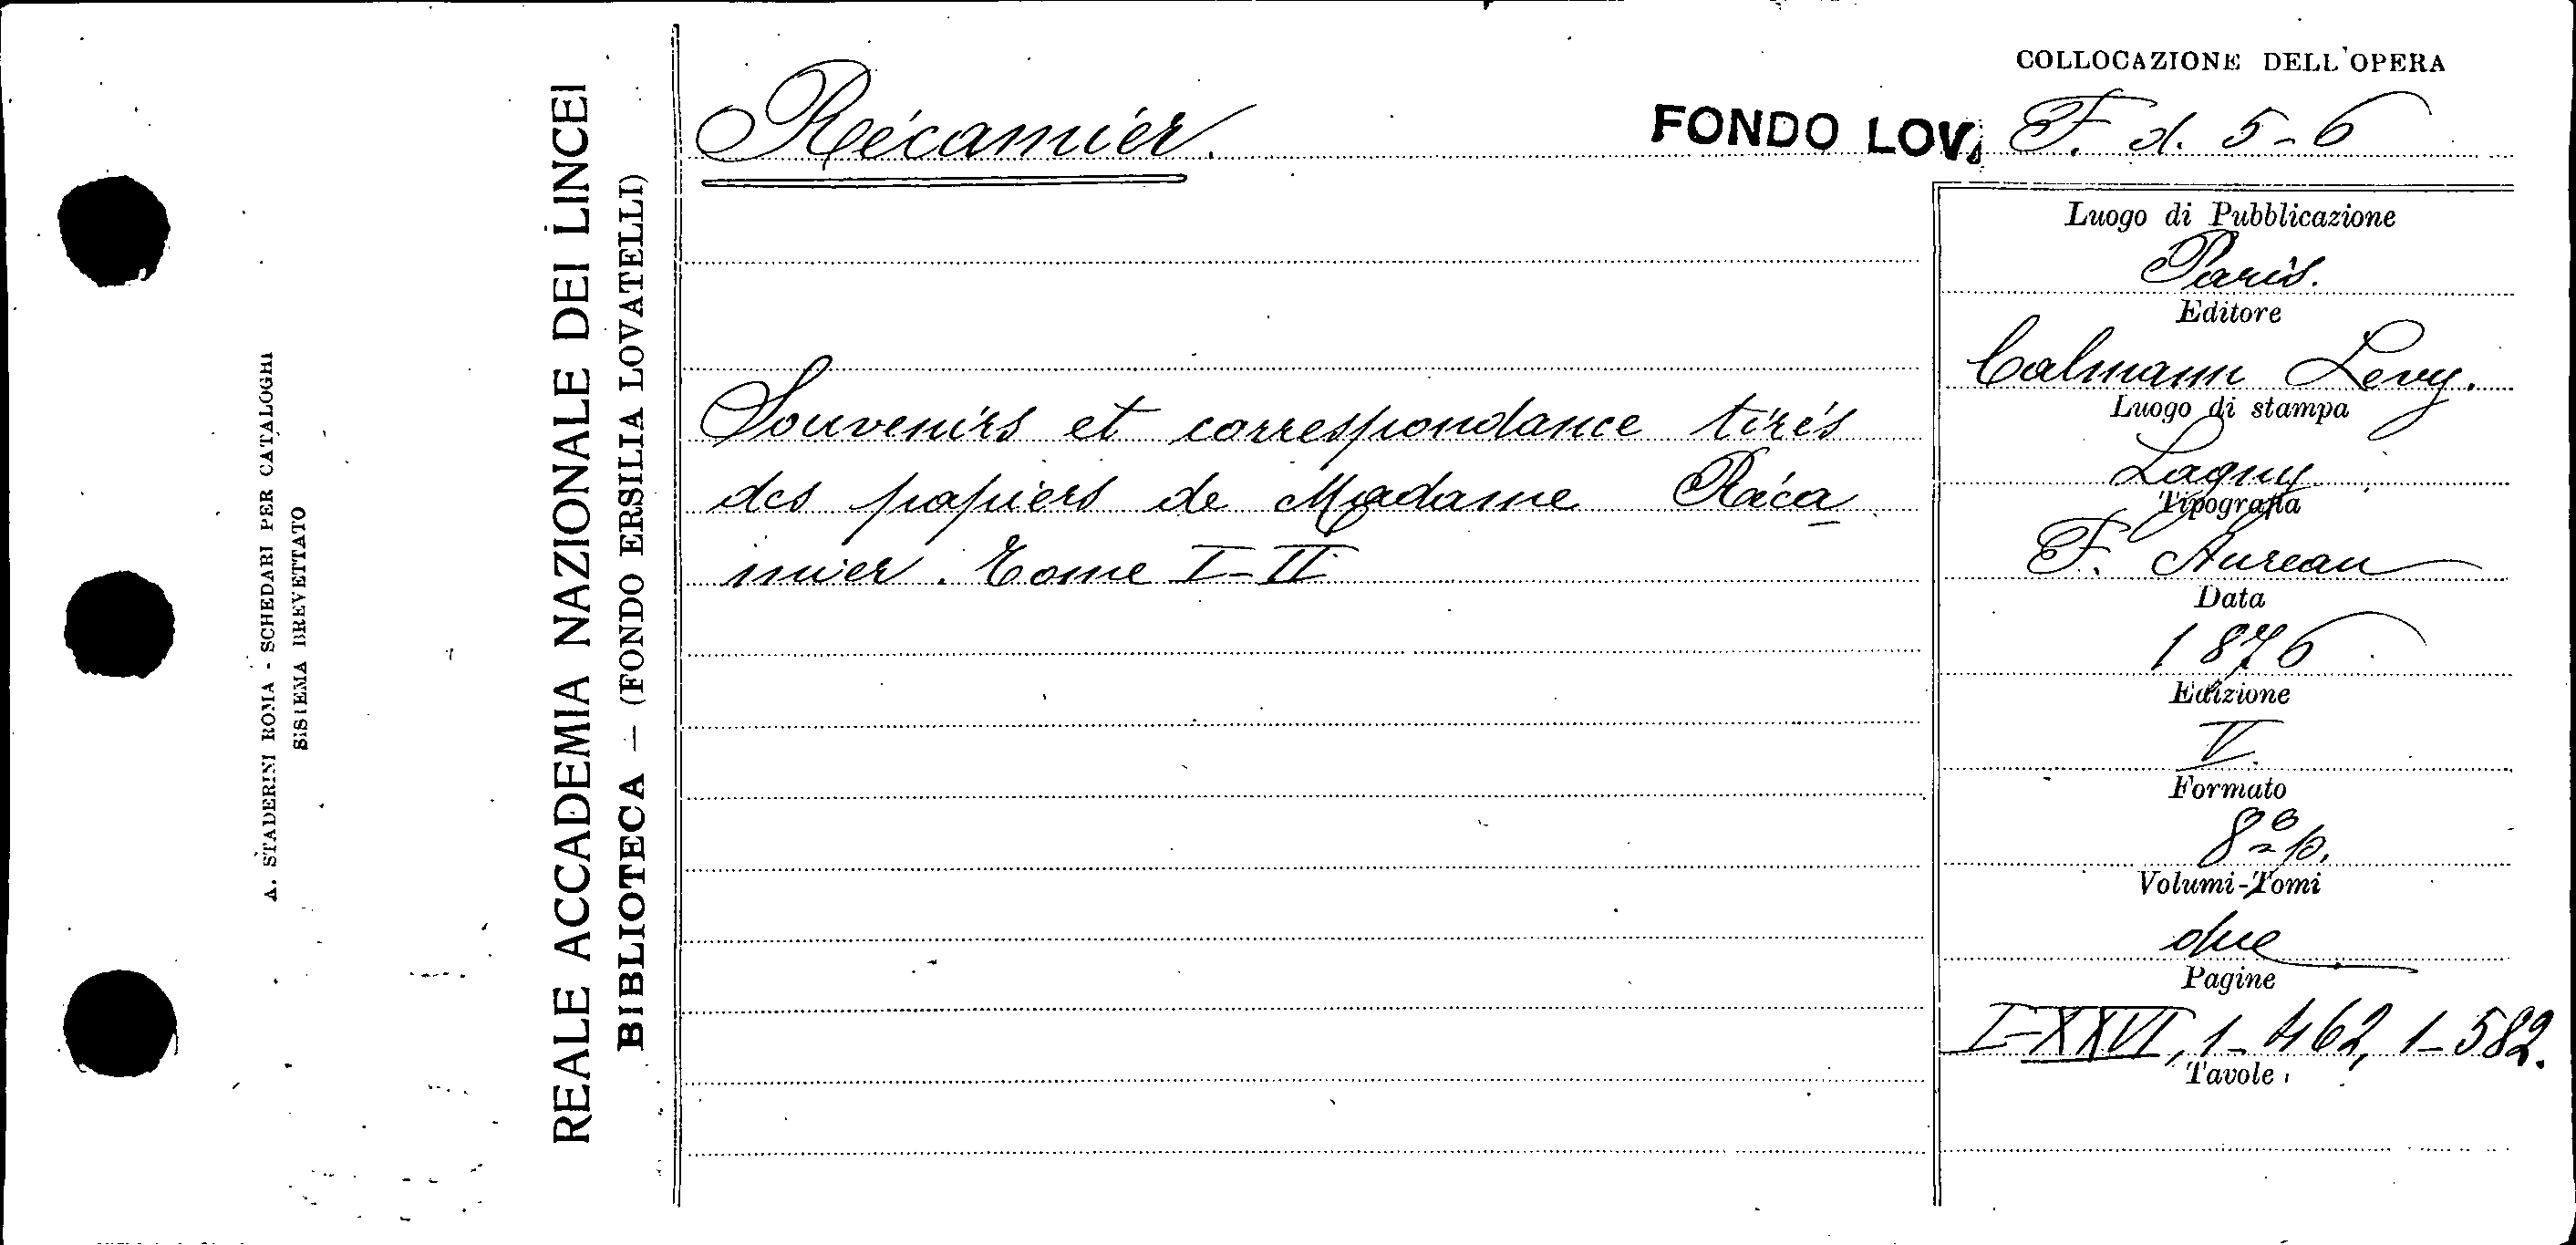 A. STADERINI ROMA - SCHEDARI PER CATALOGHI
SISTEMA BREVETTATO
REALE ACCADEMIA NAZIONALE DEI LINCEI
BIBLIOTECA — (FONDO ERSILIA LOVATELLI)
Récamier.
COLLOCAZIONE DELL'OPERA
FONDO LOV. F. d. 5-6
Souvenirs et correspondance tirés
des papiers de Madame Réca
mier. Tome I-II
Luogo di Pubblicazione
Paris.
Editore
Calmann Levy.
Luogo di stampa
Lagny
Tipografia
F. Aureau
Data
1876
Edizione
V.
Formato
8º p.
Volumi-Tomi
due
Pagine
I-XXVI, 1-462, 1-582.
Tavole